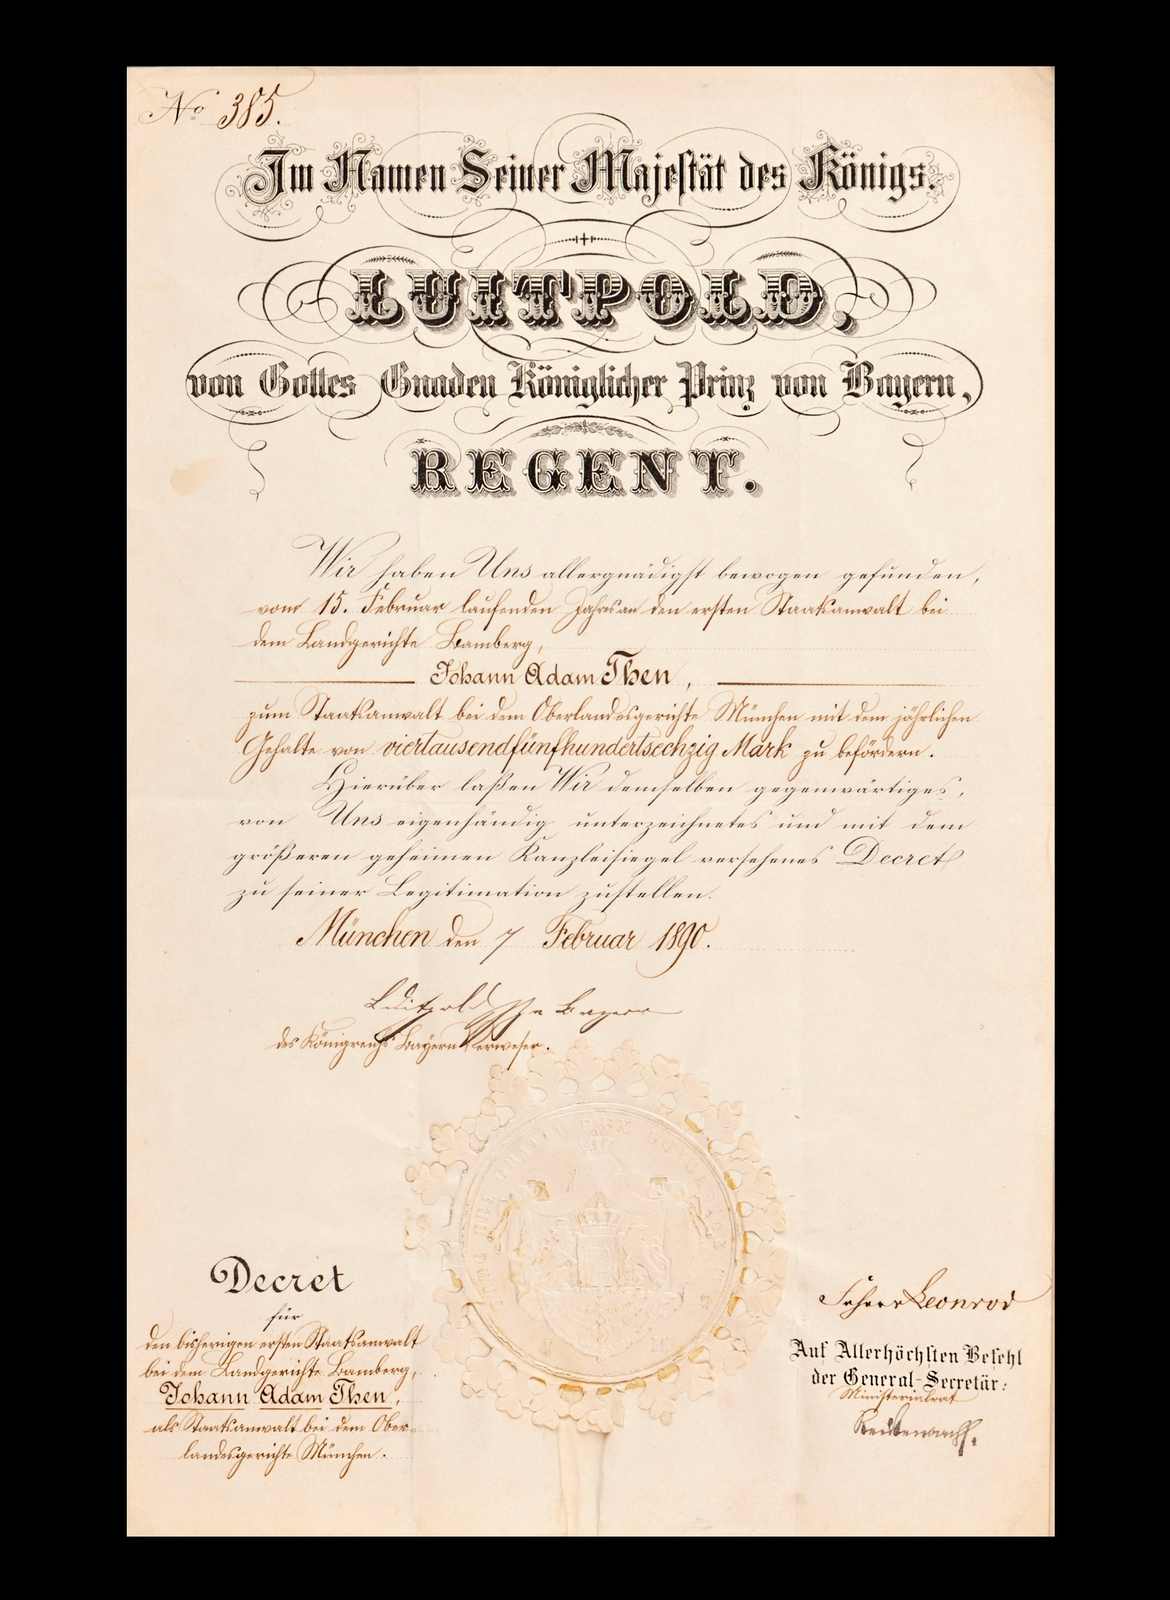 No 385.
Im Namen Seiner Majestät des Königs.
LUITPOLD,
von Gottes Gnaden Königlicher Prinz von Bayern,
REGENT.
Wir haben Uns allergnädigst bewogen gefunden,
vom 15. Februar laufenden Jahrs an den ersten Staatsanwalt bei
dem Landgerichte Bamberg,
Johann Adam Then,
zum Staatsanwalt bei dem Oberlandesgerichte München mit dem jährlichen
Gehalte von viertausendfünfhundertsechzig Mark zu befördern.
Hierüber laßen Wir demselben gegenwärtiges,
von Uns eigenhändig unterzeichnetes und mit dem
größeren geheimen Kanzleisiegel versehenes Decret
zu seiner Legitimation zustellen.
München den 7 Februar 1890.
Luitpold Prz v Bayern
des Königreichs Bayern Verweser.
Decret
für
den bisherigen ersten Staatsanwalt
bei dem Landgerichte Bamberg,
Johann Adam Then,
als Staatsanwalt bei dem Ober-
landesgerichte München.
Leonrod
Auf Allerhöchsten Befehl
der General-Secretär:
Ministerialrat